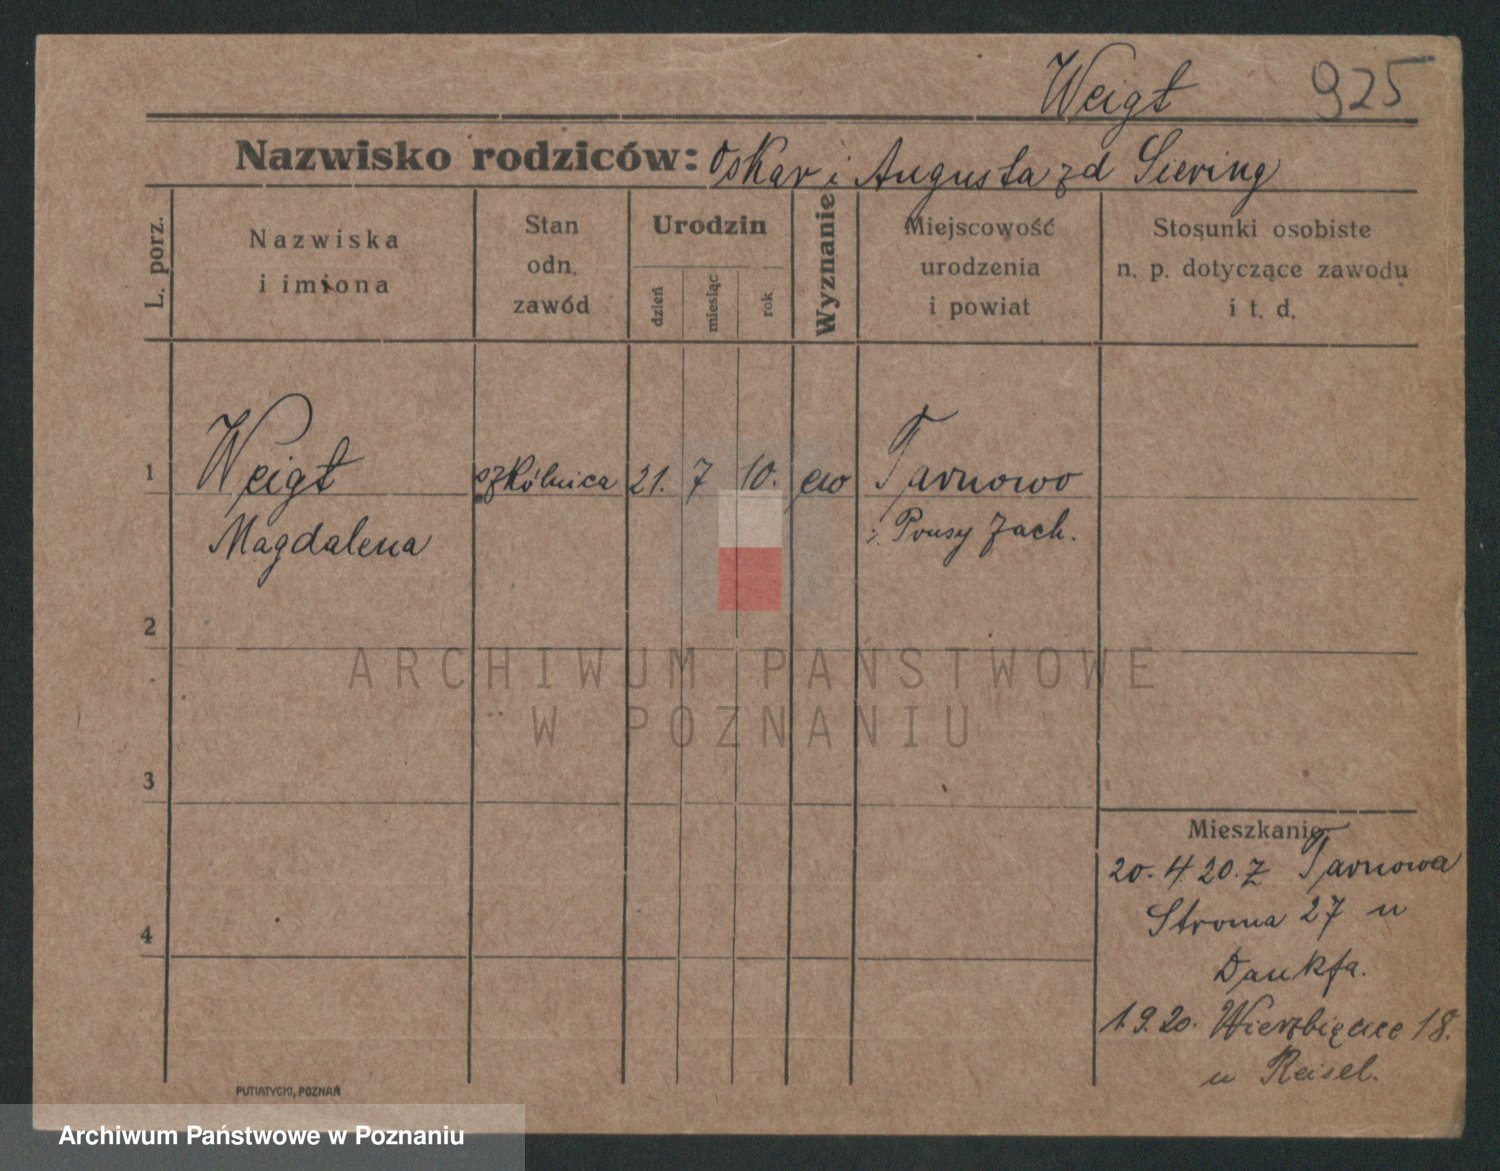 Weigt 925
Nazwisko rodziców: Oskar i Augusta zd Siering
L. porz.
Nazwiska
i imiona
Stan
odn.
zawód
Urodzin
dzień
miesiąc
rok
Wyznanie
Miejscowość
urodzenia
i powiat
Stosunki osobiste
n. p. dotyczące zawodu
i t. d.
1 Weigt szkólnica 21. 7 10. ew Tarnowo
Magdalena i. Prusy Zach.
2
ARCHIWUM PAŃSTWOWE
W POZNANIU
3
Mieszkanie
20. 4. 20. Z Tarnowa
Stroma 27 u
Dankfa.
4
1. 9. 20. Wierzbięcice 18.
u Reisel.
PUTIATYCKI, POZNAŃ
Archiwum Państwowe w Poznaniu